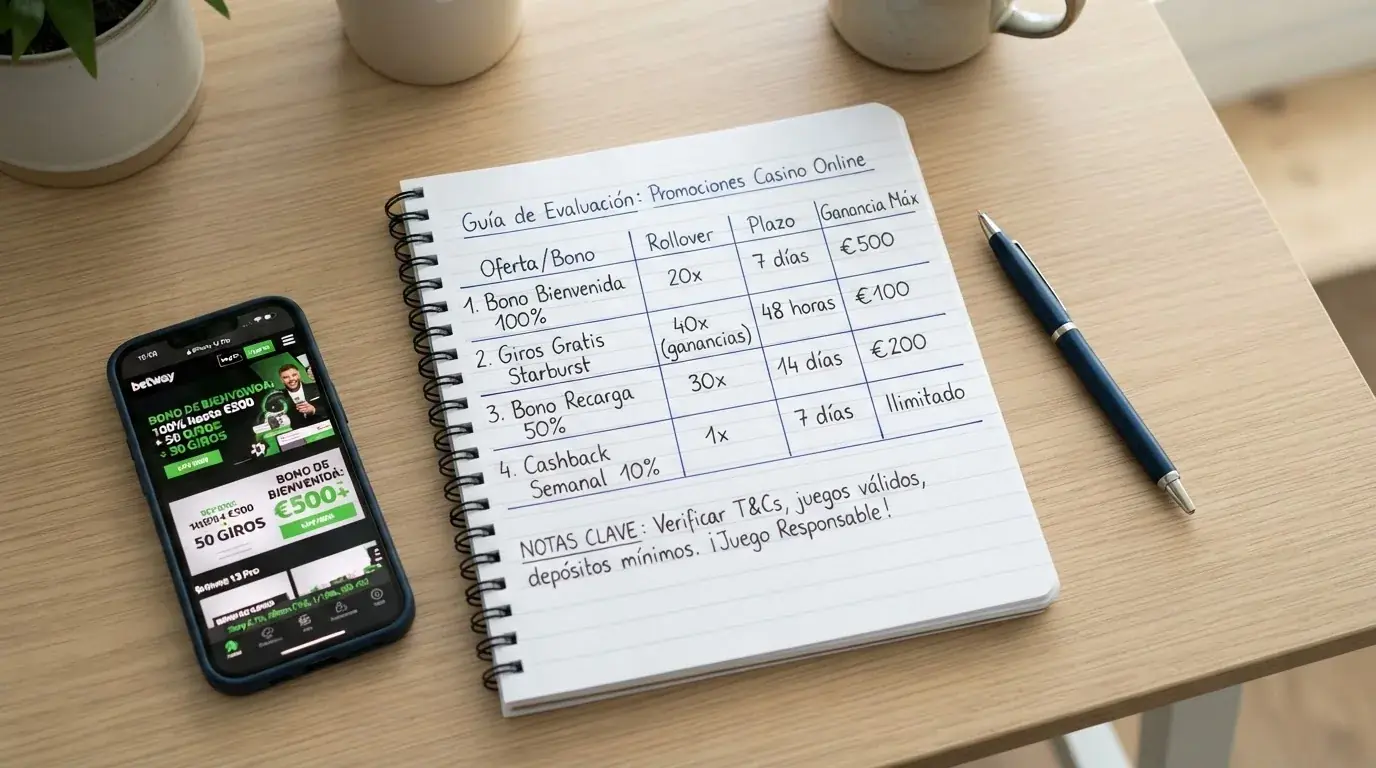 Guía de Evaluación: Promociones Casino Online
Oferta/Bono Rollover Plazo Ganancia Máx
1. Bono Bienvenida 100% 20x 7 días €500
2. Giros Gratis Starburst 40x (ganancias) 48 horas €100
3. Bono Recarga 50% 30x 14 días €200
4. Cashback Semanal 10% 1x 7 días Ilimitado
NOTAS CLAVE: Verificar T&Cs, juegos válidos,
depósitos mínimos. ¡Juego Responsable!
betway
BONO DE BIENVENIDA:
100% Hasta €500
+ 50 GIROS
50 GIROS
BONO DE
BIENVENIDA:
€500+
50 GIROS